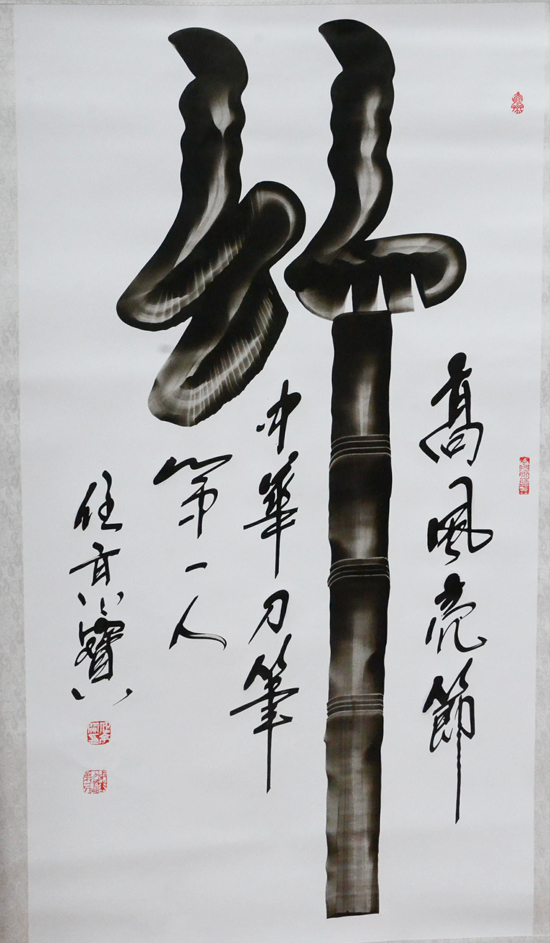 高風亮節
竹
中華刀筆
第一人
任京寶